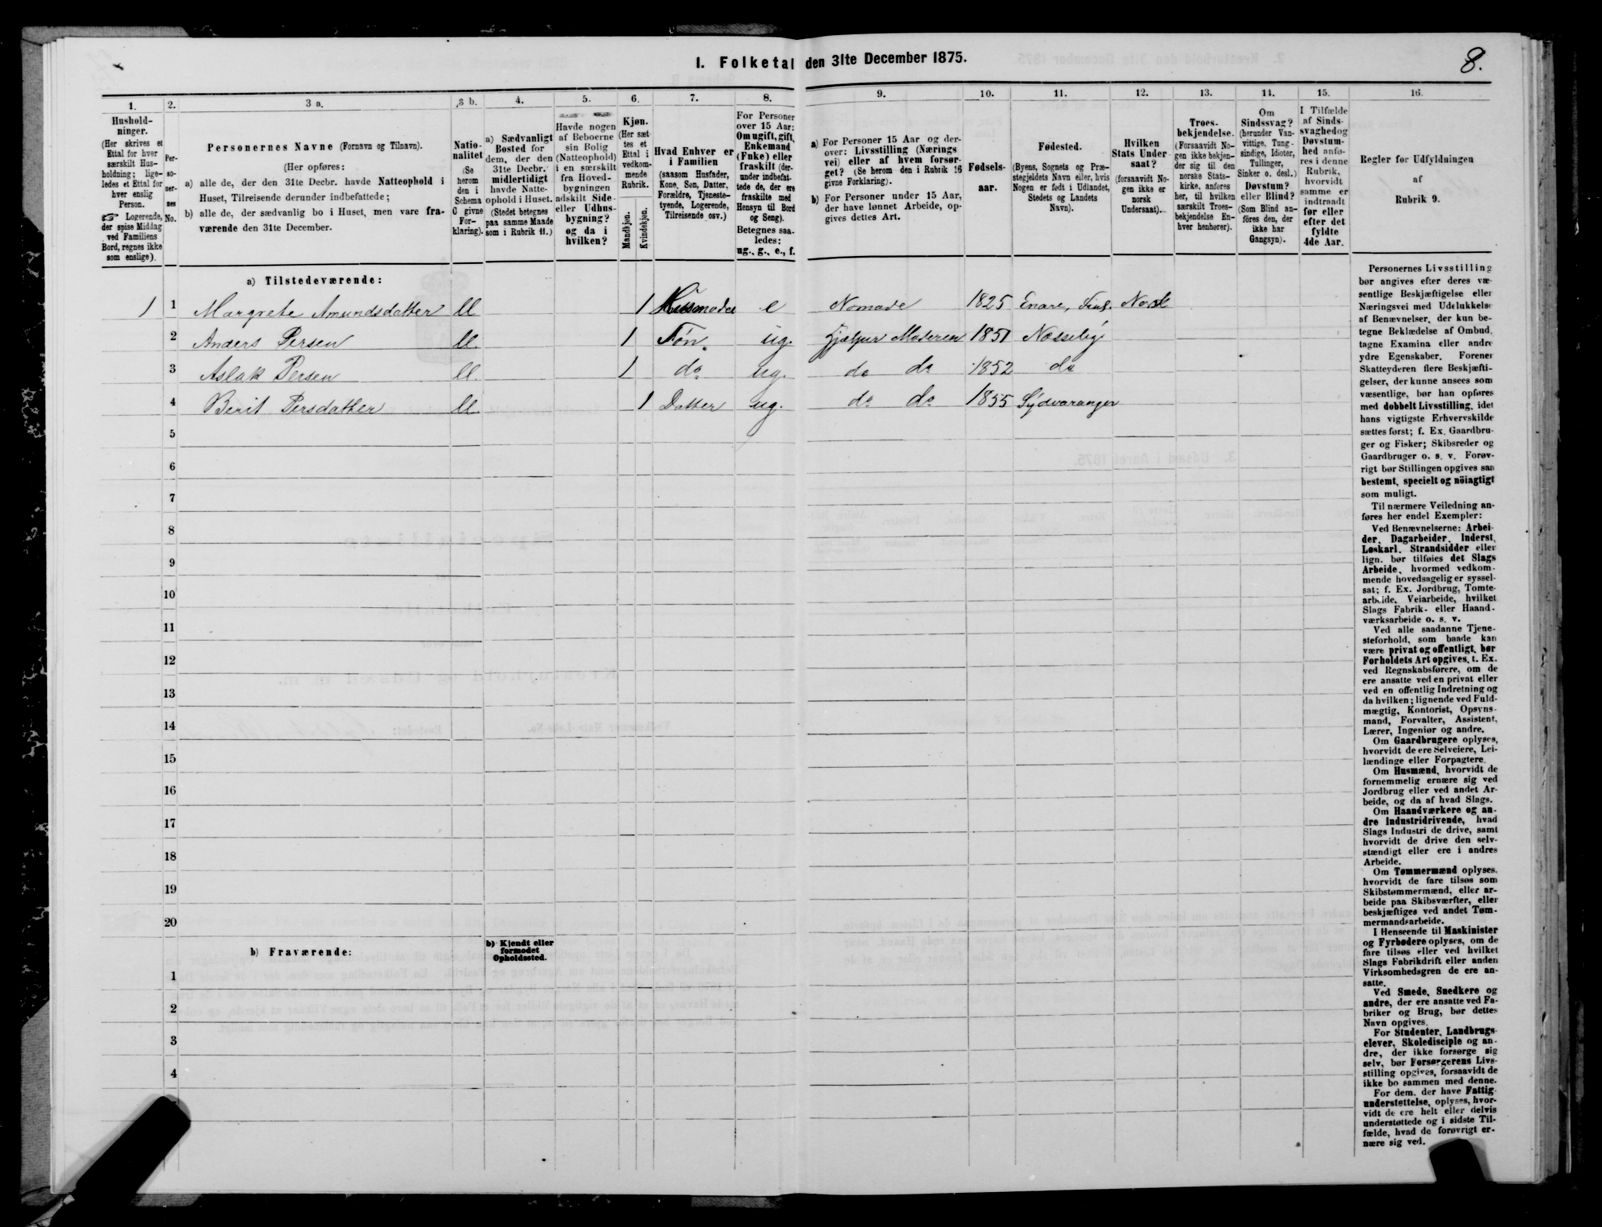 8.
I. Folketal den 31te December 1875.
1.
Hushold-
ninger.
(Her skrives et
Ettal for hver
særskilt Hus-
holdning; lige-
ledes et Ettal for
hver enslig
Person.
☞ Logerende,
der spise Middag
ved Familiens
Bord, regnes ikke
som enslige).
2.
Per-
so-
ner-
nes
No.
3 a.
Personernes Navne (Fornavn og Tilnavn).
(Her opføres:
a) alle de, der den 31te Decbr. havde Natteophold i
Huset, Tilreisende derunder indbefattede;
b) alle de, der sædvanlig bo i Huset, men vare fra-
værende den 31te December.
3 b.
Natio-
nalitet
(Se
herom
den i
Schema
C givne
For-
klaring).
4.
a) Sædvanligt
Bosted for
dem, der den
31te Decbr.
midlertidigt
havde Natte-
ophold i Huset.
(Stedet betegnes
paa samme Maade
som i Rubrik 11.)
5.
Havde nogen
af Beboerne
sin Bolig
(Natteophold)
i en særskilt
fra Hoved-
bygningen
adskilt Side-
eller Udhus-
bygning?
og da i
hvilken?
6.
Kjøn.
(Her sæt-
tes et
Ettal i
vedkom-
mende
Rubrik.
Mandkjøn.
Kvindekjøn.
7.
Hvad Enhver er
i Familien
(saasom Husfader,
Kone, Søn, Datter,
Forældre, Tjeneste-
tyende, Logerende,
Tilreisende osv.)
8.
For Personer
over 15 Aar:
Om ugift, gift,
Enkemand
(Enke) eller
fraskilt (der-
under indbefat-
tede de, der ere
fraskilte med
Hensyn til Bord
og Seng).
Betegnes saa-
ledes:
ug., g., e., f.
9.
a) For Personer 15 Aar og der-
over: Livsstilling (Nærings
vei) eller af hvem forsør-
get? (Se herom den i Rubrik 16
givne Forklaring).
b) For Personer under 15 Aar,
der have lønnet Arbeide, op-
gives dettes Art.
10.
Fødsels-
aar.
11.
Fødested.
(Byens, Sognets og Præ-
stegjeldets Navn eller, hvis
Nogen er født i Udlandet,
Stedets og Landets
Navn).
12.
Hvilken
Stats Under-
saat?
(forsaavidt No-
gen ikke er
norsk
Undersaat).
13.
Troes-
bekjendelse.
(Forsaavidt No-
gen ikke bekjen-
der sig til den
norske Stats-
kirke, anføres
her, til hvilken
særskilt Troes-
bekjendelse En-
hver henhører).
14.
Om
Sindssvag?
(herunder Van-
vittige, Tung-
sindige, Idioter,
Tullinger,
Sinker o. desl.)
Døvstum?
eller Blind?
(Som Blind an-
føres den, der
ikke har
Gangsyn).
15.
I Tilfælde
af Sinds-
svaghed og
Døvstum-
hed anfø-
res i denne
Rubrik,
hvorvidt
samme er
indtraadt
før eller
efter det
fyldte
4de Aar.
16.
Regler for Udfyldningen
af
Rubrik 9.
a) Tilstedeværende:
1 1 Margrete Amundsdatter ll 1 Husmoder e Nomade 1825 Enare, Finl. Norsk
2 Anders Persen ll. 1 Søn. ug. hjælper Moderen 1851 Næsseby
3 Aslak Persen ll. 1 do. ug. do do 1852 do
4 Berit Persdatter ll. 1 Datter ug. do do 1855 Sydvaranger
5
6
7
8
9
10
11
12
13
14
15
16
17
18
19
20
b) Fraværende:
b) Kjendt eller
formodet
Opholdssted.
1
2
3
4
Personernes Livsstilling
bør angives efter deres væ-
sentlige Beskjæftigelse eller
Næringsvei med Udelukkelse
af Benævnelser, der kun be-
tegne Beklædelse af Ombud,
tagne Examina eller andre
ydre Egenskaber. Forener
Skatteyderen flere Beskjæfti-
gelser, der kunne ansees som
væsentlige, bør han opføres
med dobbelt Livsstilling, idet
hans vigtigste Erhvervskilde
sættes først; f. Ex. Gaardbru-
ger og Fisker; Skibsreder og
Gaardbruger o. s. v. Forøv-
rigt bør Stillingen opgives saa
bestemt, specielt og nöiagtigt
som muligt.
Til nærmere Veiledning an-
føres her endel Exempler:
Ved Benævnelserne: Arbei-
der, Dagarbeider, Inderst,
Løskarl, Strandsidder eller
lign. bør tilføies det Slags
Arbeide, hvormed vedkom-
mende hovedsagelig er syssel-
sat; f. Ex. Jordbrug, Tomte-
arbeide, Veiarbeide, hvilket
Slags Fabrik- eller Haand-
værksarbeide o. s. v.
Ved alle saadanne Tjene-
steforhold, som baade kan
være privat og offentligt, bør
Forholdets Art opgives, t. Ex.
ved Regnskabsførere, om de
ere ansatte ved en privat eller
ved en offentlig Indretning og
da hvilken; lignende ved Fuld-
mægtig, Kontorist, Opsyns-
mand, Forvalter, Assistent,
Lærer, Ingeniør og andre.
Om Gaardbrugere oplyses,
hvorvidt de ere Selveiere, Lei-
lændinge eller Forpagtere.
Om Husmænd, hvorvidt de
fornemmelig ernære sig ved
Jordbrug eller ved andet Ar-
beide, og da af hvad Slags.
Om Haandværkere og an-
dre Industridrivende, hvad
Slags Industri de drive, samt
hvorvidt de drive den selv-
stændigt eller ere i andres
Arbeide.
Om Tømmermænd oplyses,
hvorvidt de fare tilsøs som
Skibstømmermænd, eller ar-
beide paa Skibsværfter, eller
beskjæftiges ved andet Tøm-
mermandsarbeide.
I Henseende til Maskinister
og Fyrbødere oplyses, om de
fare tilsøs eller ved hvilket
Slags Fabrikdrift eller anden
Virksomhedsgren de ere an-
satte.
Ved Smede, Snedkere og
andre, der ere ansatte ved Fa-
briker og Brug, bør dettes
Navn opgives.
For Studenter, Landbrugs-
elever, Skoledisciple og an-
dre, der ikke forsørge sig
selv, bør Forsørgerens Livs-
stilling opgives, forsaavidt de
ikke bo sammen med denne.
For dem, der have Fattig-
understøttelse, oplyses, hvor-
vidt de ere helt eller delvis
understøttede og i sidste Til-
fælde, hvad de forøvrigt er-
nære sig ved.